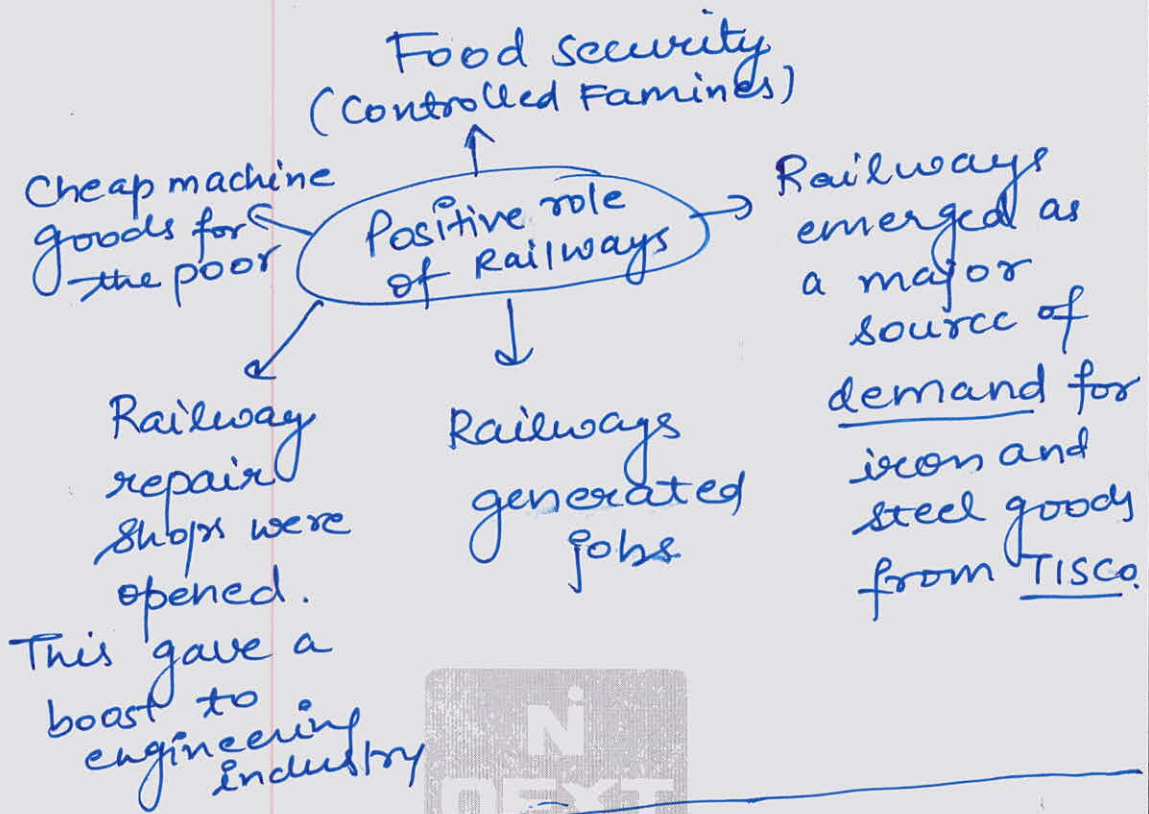 Food security
(Controlled Famines)
Cheap machine
goods for
the poor
Positive role
of Railways
Railways
emerged as
a major
source of
demand for
iron and
steel goods
from TISCO.
Railway
repair
shops were
opened.
This gave a
boost to
engineering
industry
Railways
generated
jobs
N
NEXT